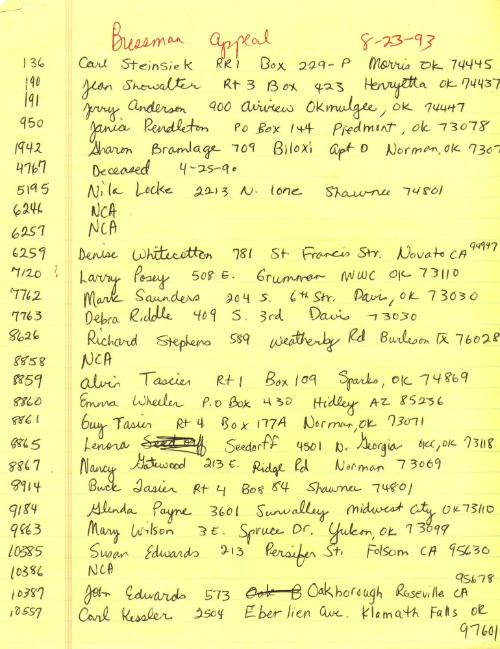 Bressman Appeal 8-23-93
136 Carl Steinsiek RR1 Box 229-P Morris OK 74445
190 Jean Showalter Rt 3 Box 423 Henryetta OK 74437
191 Jerry Anderson 900 Airview Okmulgee, OK 74447
950 Janice Pendleton PO Box 144 Piedmont, OK 73078
1942 Sharon Bramlage 709 Biloxi Apt D Norman, OK 7307
4767 Deceased 4-25-90
5195 Nila Locke 2213 N. Ione Shawnee 74801
6246 NCA
6257 NCA
6259 Denise Whitecotton 781 St Francis Str. Novato CA 94947
7120 ? Larry Posey 508 E. Grumman MWC OK 73110
7762 Mark Saunders 204 S. 6th Str. Davis, OK 73030
7763 Debra Riddle 409 S. 3rd Davis 73030
8626 Richard Stephens 589 Weatherby Rd Burleson TX 76028
8858 NCA
8859 Alvin Tasier Rt 1 Box 109 Sparks, OK 74869
8860 Emma Wheeler P.O Box 430 Hidley AZ 85236
8861 Guy Tasier Rt 4 Box 177A Norman, OK 73071
8865 Lenora Seedorff 4501 N. Georgia OKC, OK 73118
8867 Nancy Gatewood 213 E. Ridge Rd Norman 73069
8914 Buck Tasier Rt 4 Box 84 Shawnee 74801
9184 Glenda Payne 3601 Sunvalley Midwest City OK 73110
9863 Mary Wilson 3 E. Spruce Dr. Yukon, OK 73099
10385 Susan Edwards 213 Persifer St. Folsom CA 95630
10386 NCA
10387 John Edwards 573 Oakborough Roseville CA 95678
10557 Carl Kessler 2504 Eberlien Ave. Klamath Falls OR
97601